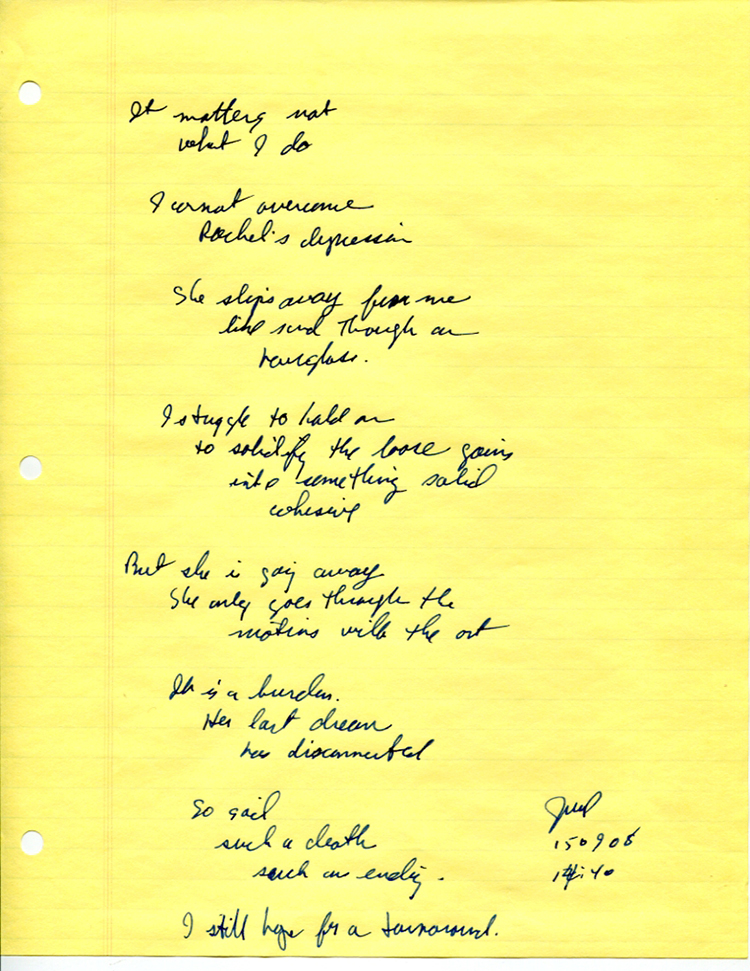 It matters not
what I do
I cannot overcome
Rachel's depression
She slips away from me
like sand through an
hourglass.
I struggle to hold on
to solidify the loose grains
into something solid
cohesive
But she is going away
She only goes through the
motions with the art
It is a burden.
Her last dream
has disconnected
So sad
such a death
such an ending.
150908
I still hope for a turnaround.